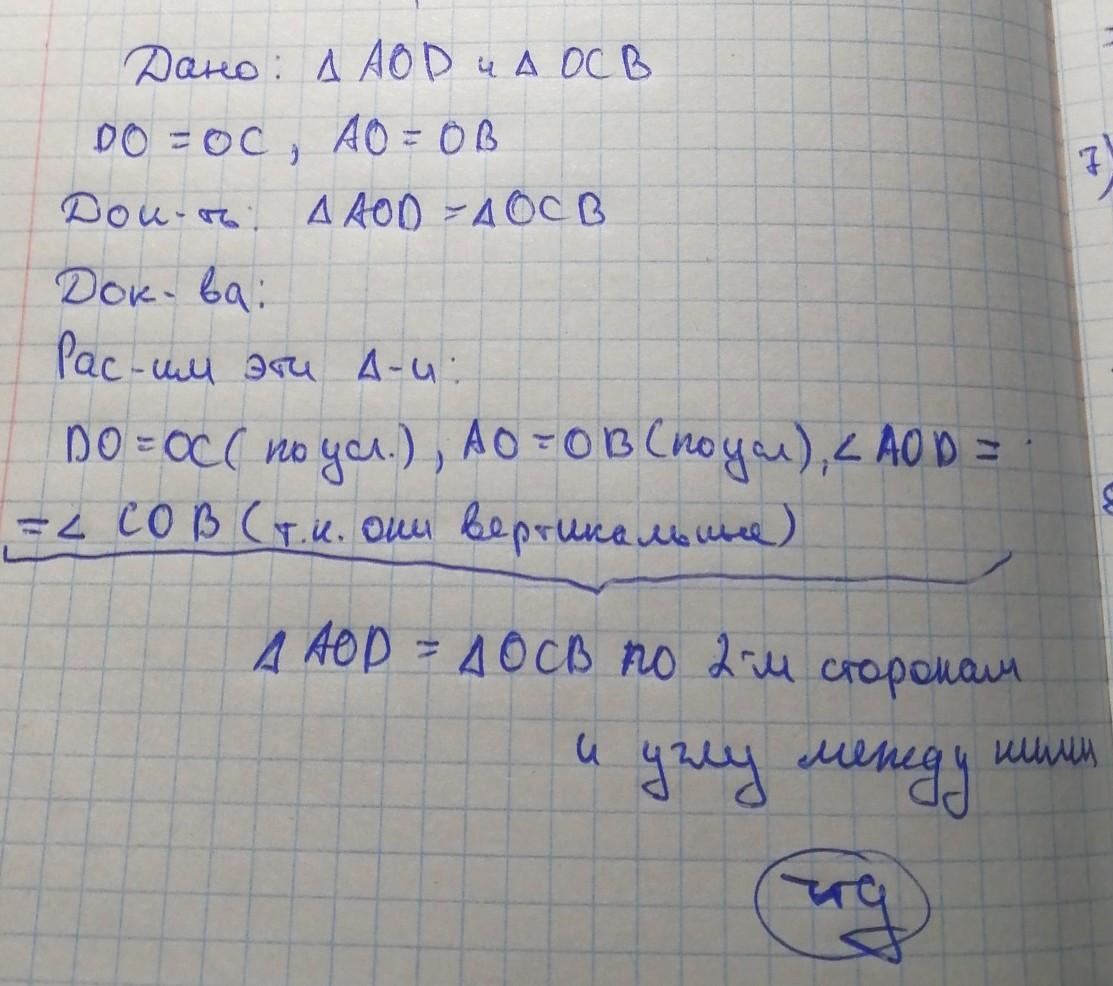 Дано: Δ AOD и Δ OCB
DO = OC, AO = OB
Док-ть: Δ AOD = Δ OCB
Док-ва:
Рас-им эти Δ-и:
DO = OC (по усл.), AO = OB (по усл), ∠ AOD =
= ∠ COB (т.к. они вертикальные)
Δ AOD = Δ OCB по 2-м сторонам
и углу между ними
чтд
7)